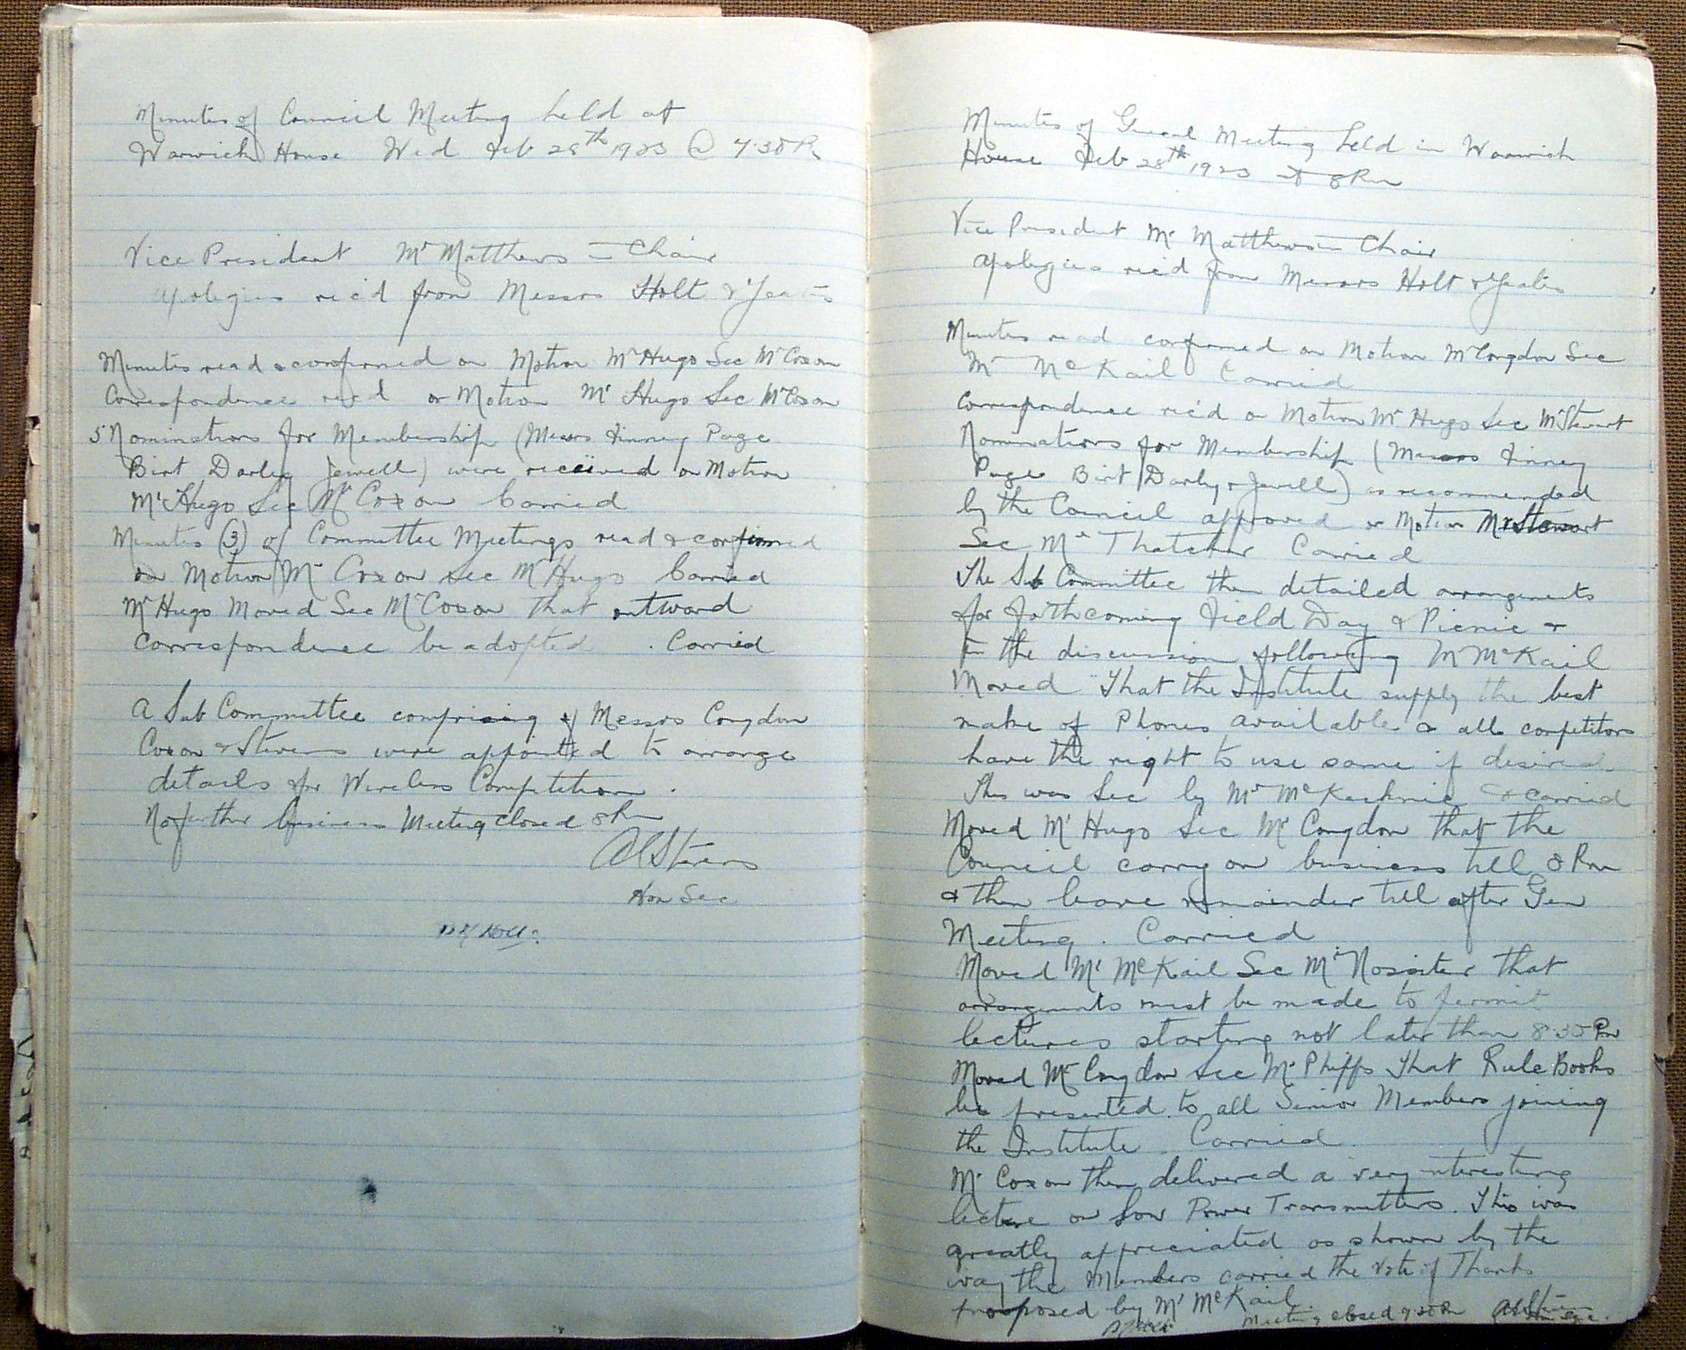 Minutes of Council Meeting held at
Warwick House Wed Feb 28th 1923 @ 7.30 Pm
Vice President Mr Matthews in Chair
apologies rec'd from Messrs Holt & Yeates
Minutes read & confirmed on Motion Mr Hugo Sec Mr Coxon
Correspondence rec'd on Motion Mr Hugo Sec Mr Coxon
5 Nominations for Membership (Messrs Finney Page
Birt Darley Jewell) were received on Motion
Mr Hugo Sec Mr Coxon Carried
Minutes (3) of Committee Meetings read & confirmed
on Motion Mr Coxon Sec Mr Hugo Carried
Mr Hugo Moved Sec Mr Coxon that outward
correspondence be adopted . Carried
A Sub Committee comprising of Messrs Congdon
Coxon & Stevens were appointed to arrange
details for Wireless Competition .
No further business Meeting closed 8 Pm
Stevens
Hon Sec
Minutes of General Meeting held in Warwick
House Feb 28th 1923 at 8 Pm
Vice President Mr Matthews in Chair
apologies rec'd from Messrs Holt & Yeates
Minutes read confirmed on Motion Mr Congdon Sec
Mr McKail Carried
Correspondence rec'd on Motion Mr Hugo Sec Mr Stewart
Nominations for Membership (Messrs Finney
Page Birt Darley & Jewell) as recommended
by the Council approved on Motion Mr Stewart
Sec Mr Thatcher Carried
The Sub Committee then detailed arrangements
for forthcoming Field Day & Picnic &
in the discussion following Mr McKail
Moved "That the Institute supply the best
make of Phones available & all competitors
have the right to use same if desired
This was Sec by Mr & carried
Moved Mr Hugo Sec Mr Congdon that the
Council carry on business till 8 Pm
& then leave remainder till after Gen
Meeting . Carried
Moved Mr McKail Sec Mr Nossiter that
arrangements must be made to permit
lectures starting not later than 8.30 Pm
Moved Mr Congdon Sec Mr Phipps That Rule Books
be presented to all Senior Members joining
the Institute . Carried
Mr Coxon then delivered a very interesting
lecture on Low Power Transmitters. This was
greatly appreciated as shown by the
way the Members carried the Vote of Thanks
proposed by Mr McKail.
Meeting closed